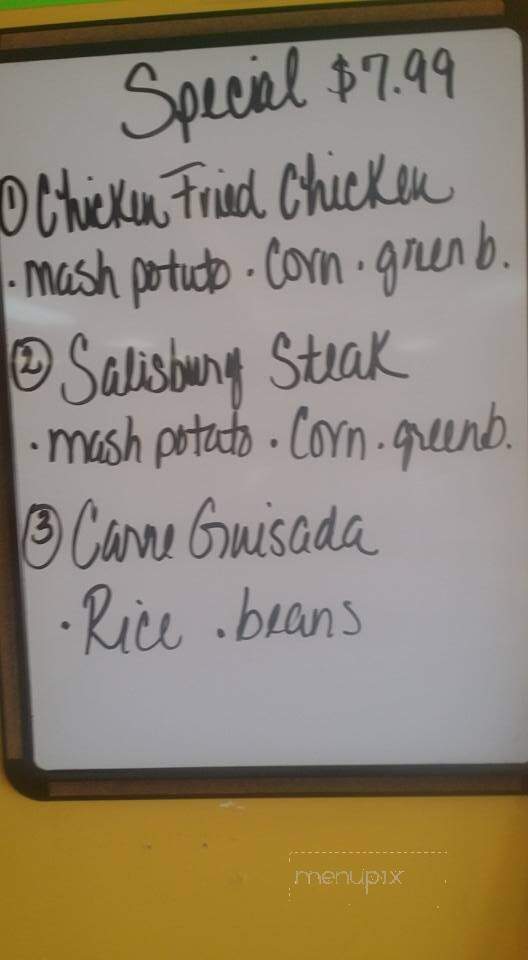 Special $7.99
① Chicken Fried Chicken
· mash potato · Corn · green b.
② Salisbury Steak
· mash potato · Corn · green b.
③ Carne Guisada
· Rice · beans
menupix